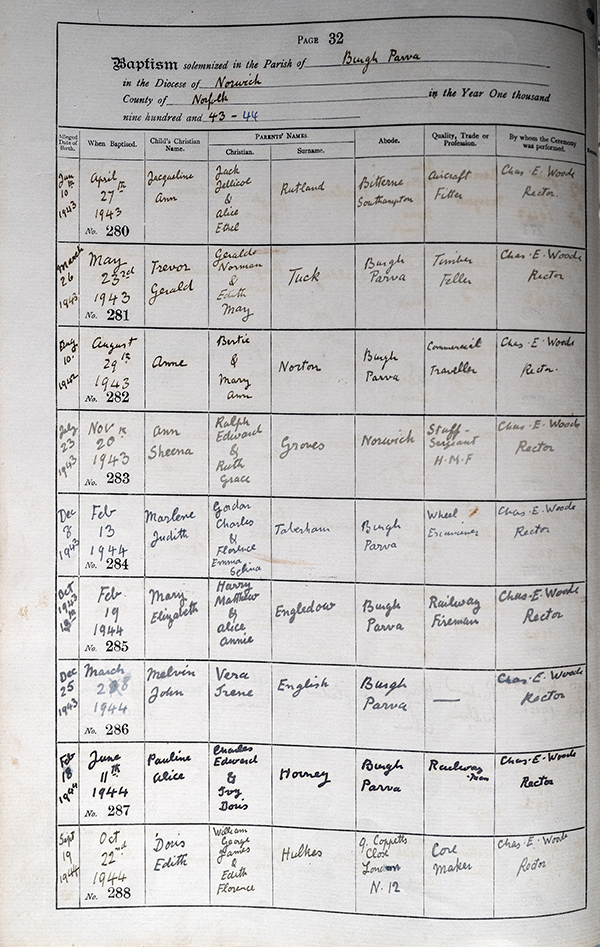 PAGE 32
Baptism solemnized in the Parish of Burgh Parva
in the Diocese of Norwich
County of Norfolk in the Year One thousand
nine hundred and 43 - 44
Alleged Date of Birth. When Baptised. Child's Christian Name. PARENTS' NAMES Abode. Quality, Trade or Profession. By whom the Ceremony was performed.
Christian. Surname.
Jan 10th 1943
April 27th 1943
No. 280
Jacqueline Ann
Jack
Jellicoe
&
Alice
Ethel
Rutland
Bitterne
Southampton
Aircraft
Fitter
Chas. E. Woode
Rector.
March 26 1943
May 23rd 1943
No. 281
Trevor
Gerald
Geralde
Norman
&
Edith
May
Tuck
Burgh
Parva
Timber
Feller
Chas. E. Woode
Rector
10. 1942
August 29th 1943
No. 282
Anne
Bertie
&
Mary
Ann
Norton
Burgh
Parva
Commercial
Traveller
Chas. E. Woode
Rector.
July 23 1943
Nov 20th 1943
No. 283
Ann
Sheena
Ralph
Edward
&
Ruth
Grace
Groves
Norwich
Staff-
Sergeant
H.M.F
Chas. E. Woode
Rector
Dec 8 1943
Feb 13 1944
No. 284
Marlene
Judith
Gordon
Charles
&
Florence
Emma
Selina
Taberham
Burgh
Parva
Wheel
Chas. E. Woode
Rector
Oct 1943
Feb 19 1944
No. 285
Mary
Elizabeth
Harry
Matthew
&
Alice
Annie
Engledow
Burgh
Parva
Railway
Fireman
Chas. E. Woode
Rector
Dec 25 1943
March 1944
No. 286
Melvin
John
Vera
Irene
English
Burgh
Parva
—
Chas. E. Woode
Rector
Feb 18 1944
June 11th 1944
No. 287
Pauline
Alice
Charles
Edward
&
Ivy
Doris
Horney
Burgh
Parva
Railway
-man
Chas. E. Woode
Rector
Sept 19 1944
Oct 22nd 1944
No. 288
Doris
Edith
William
George
James
&
Edith
Florence
Hulkes
9. Coppetts
Close
London
N. 12
Core
Maker
Chas. E. Woode
Rector